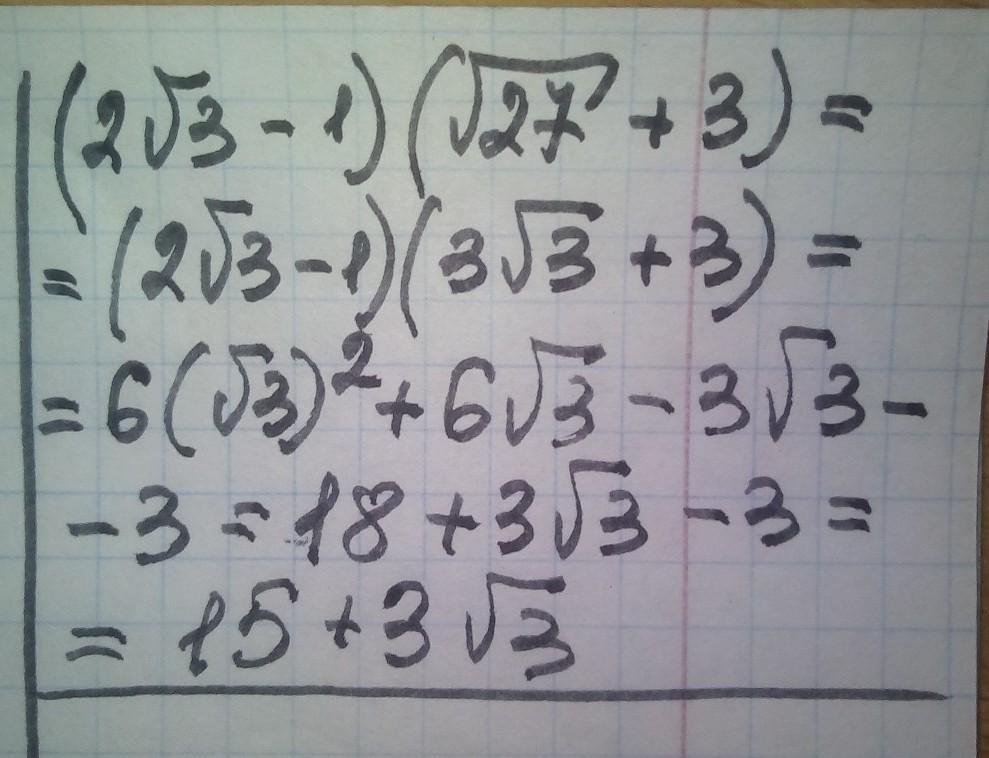 (2√3 - 1)(√27 + 3) =
= (2√3 - 1)(3√3 + 3) =
= 6(√3)² + 6√3 - 3√3 -
- 3 = 18 + 3√3 - 3 =
= 15 + 3√3